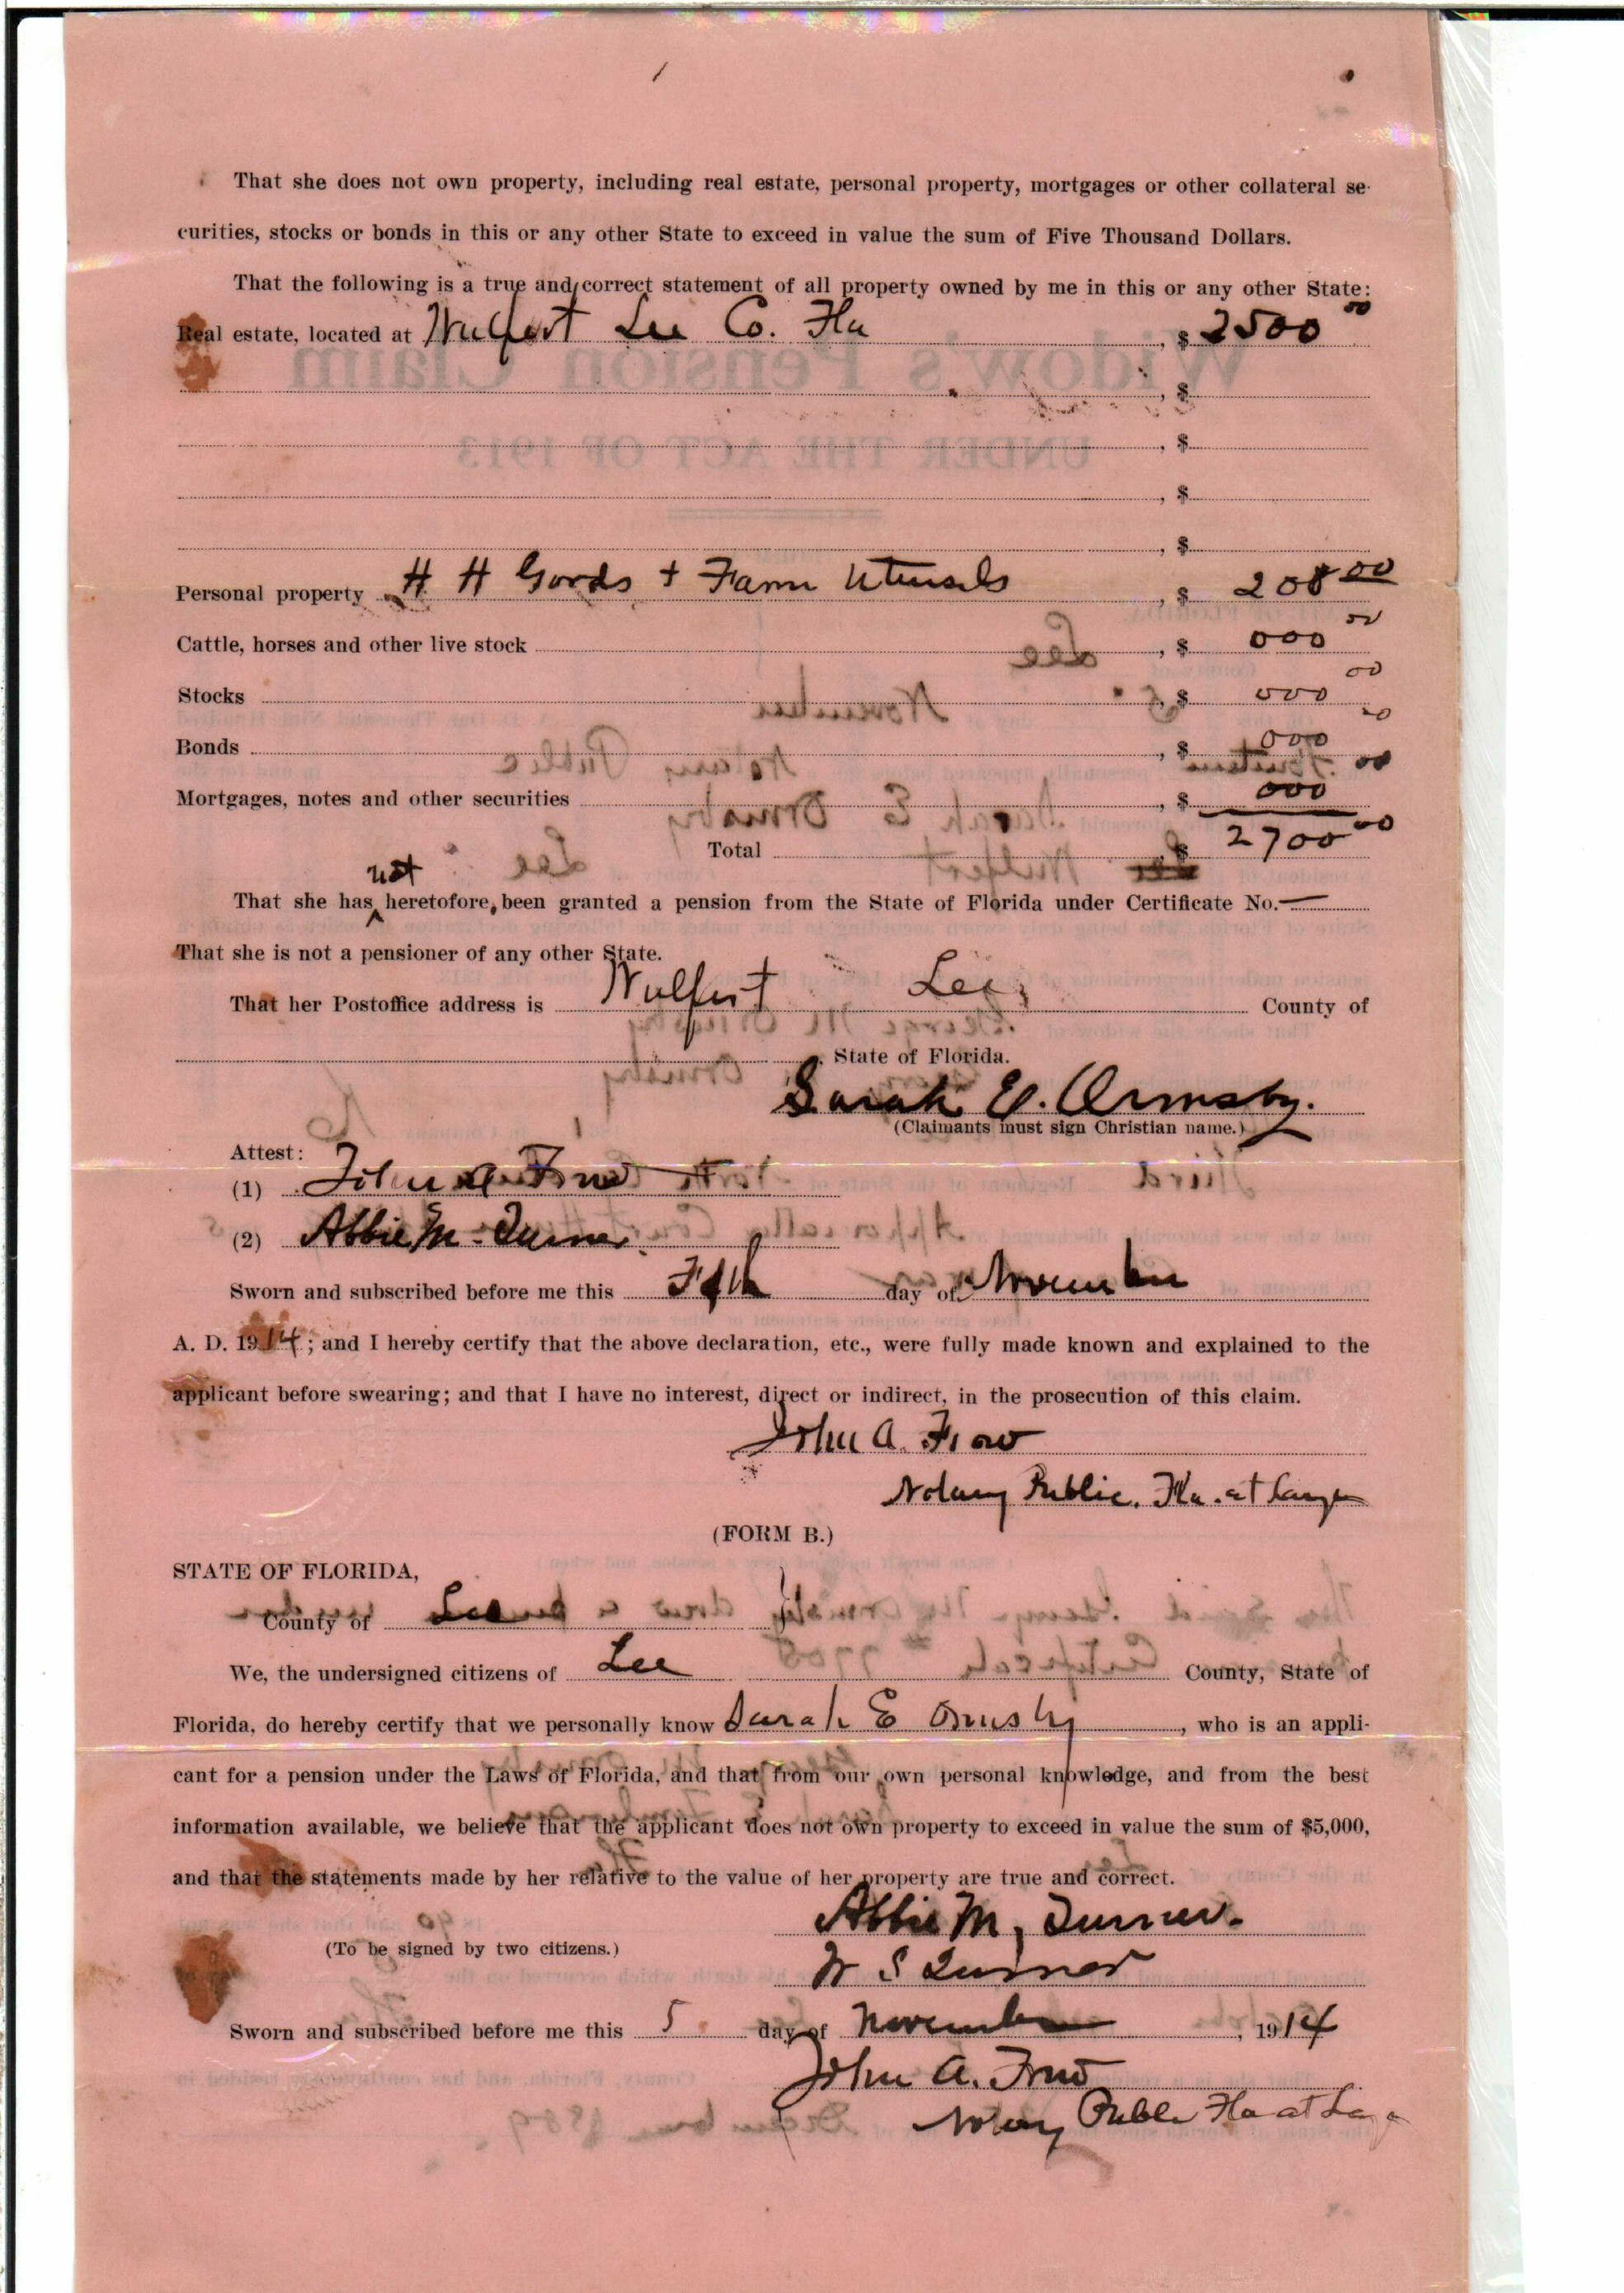 That she does not own property, including real estate, personal property, mortgages or other collateral se-
curities, stocks or bonds in this or any other State to exceed in value the sum of Five Thousand Dollars.
That the following is a true and correct statement of all property owned by me in this or any other State:
Real estate, located at Wulfert Lee Co. Fla , $ 2500 00
, $
, $
, $
, $
Personal property H H Goods + Farm Utensils , $ 200 00
Cattle, horses and other live stock , $ 000 00
Stocks , $ 000 00
Bonds , $ 000 00
Mortgages, notes and other securities , $ 000 00
Total $ 2700 00
not
That she has ^ heretofore, been granted a pension from the State of Florida under Certificate No. —
That she is not a pensioner of any other State.
That her Postoffice address is Wulfert Lee County of
State of Florida.
Sarah E. Ormsby.
(Claimants must sign Christian name.)
Attest:
(1) John A Frow
(2) Abbie M. Turner.
Sworn and subscribed before me this Fifth day of November
A. D. 1914; and I hereby certify that the above declaration, etc., were fully made known and explained to the
applicant before swearing; and that I have no interest, direct or indirect, in the prosecution of this claim.
John A. Frow
Notary Public. Fla. at Large
(FORM B.)
STATE OF FLORIDA,
County of Lee
We, the undersigned citizens of Lee County, State of
Florida, do hereby certify that we personally know Sarah E Ormsby, who is an appli-
cant for a pension under the Laws of Florida, and that from our own personal knowledge, and from the best
information available, we believe that the applicant does not own property to exceed in value the sum of $5,000,
and that the statements made by her relative to the value of her property are true and correct.
Abbie M. Turner.
(To be signed by two citizens.)
W S Turner
Sworn and subscribed before me this 5 day of November, 1914
John A. Frow
Notary Public Fla at Large